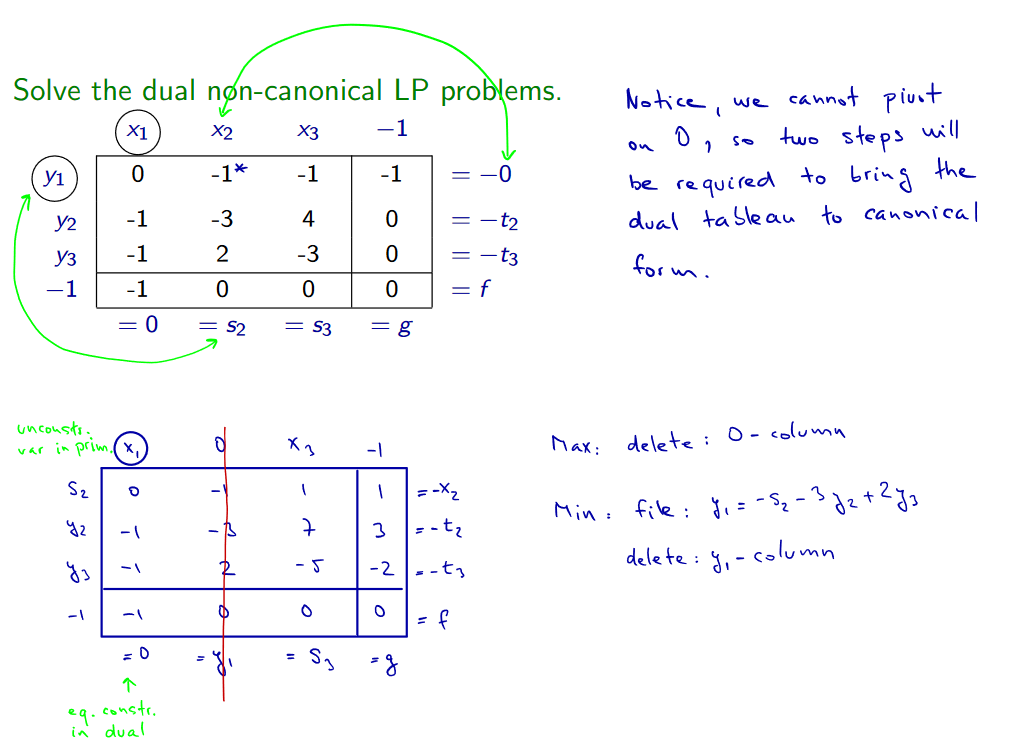 Solve the dual non-canonical LP problems.
x1 x2 x3 −1
y1 0 -1* -1 -1 = −0
y2 -1 -3 4 0 = −t2
y3 -1 2 -3 0 = −t3
−1 -1 0 0 0 = f
= 0 = s2 = s3 = g
Notice, we cannot pivot
on 0, so two steps will
be required to bring the
dual tableau to canonical
form.
unconstr.
var in prim.
x1 0 x3 -1
s2 0 -1 1 1 = -x2
y2 -1 -3 7 3 = -t2
y3 -1 2 -5 -2 = -t3
-1 -1 0 0 0 = f
= 0 = y1 = s3 = g
eq. constr.
in dual
Max: delete: 0-column
Min: file: y1 = -s2 - 3y2 + 2y3
delete: y1-column